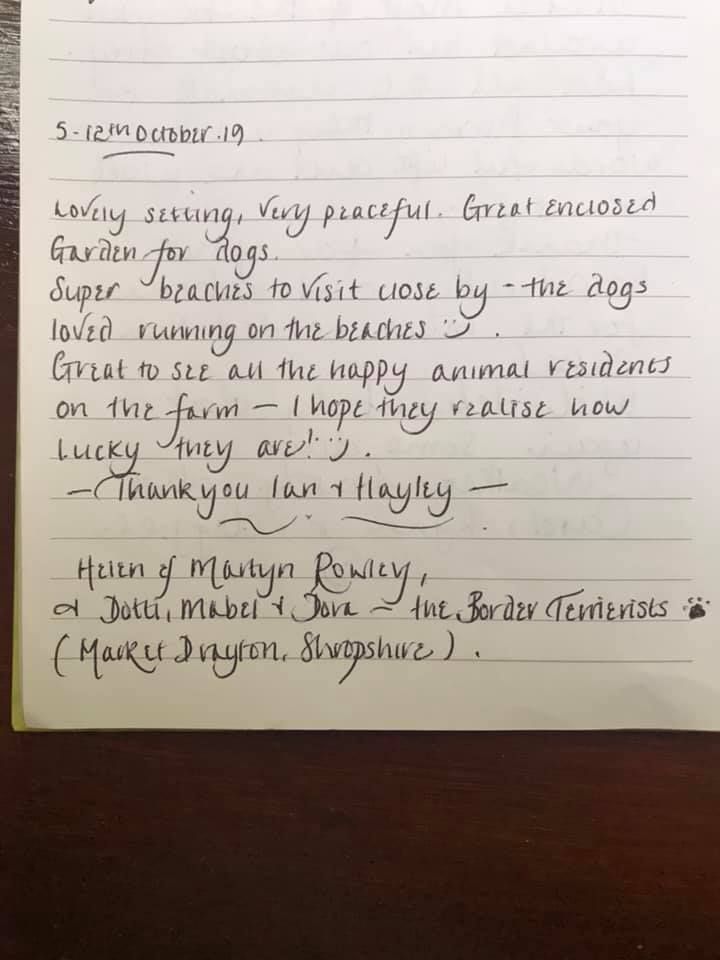 5-12th October.19.
Lovely setting, very peaceful. Great enclosed
Garden for dogs.
Super beaches to visit close by - the dogs
loved running on the beaches :) .
Great to see all the happy animal residents
on the farm - I hope they realise how
Lucky they are! :) .
- Thank you Ian & Hayley -
Helen & Martyn Rowley,
& Dotti, Mabel & Dora - the Border Terrierists
(Market Drayton, Shropshire) .